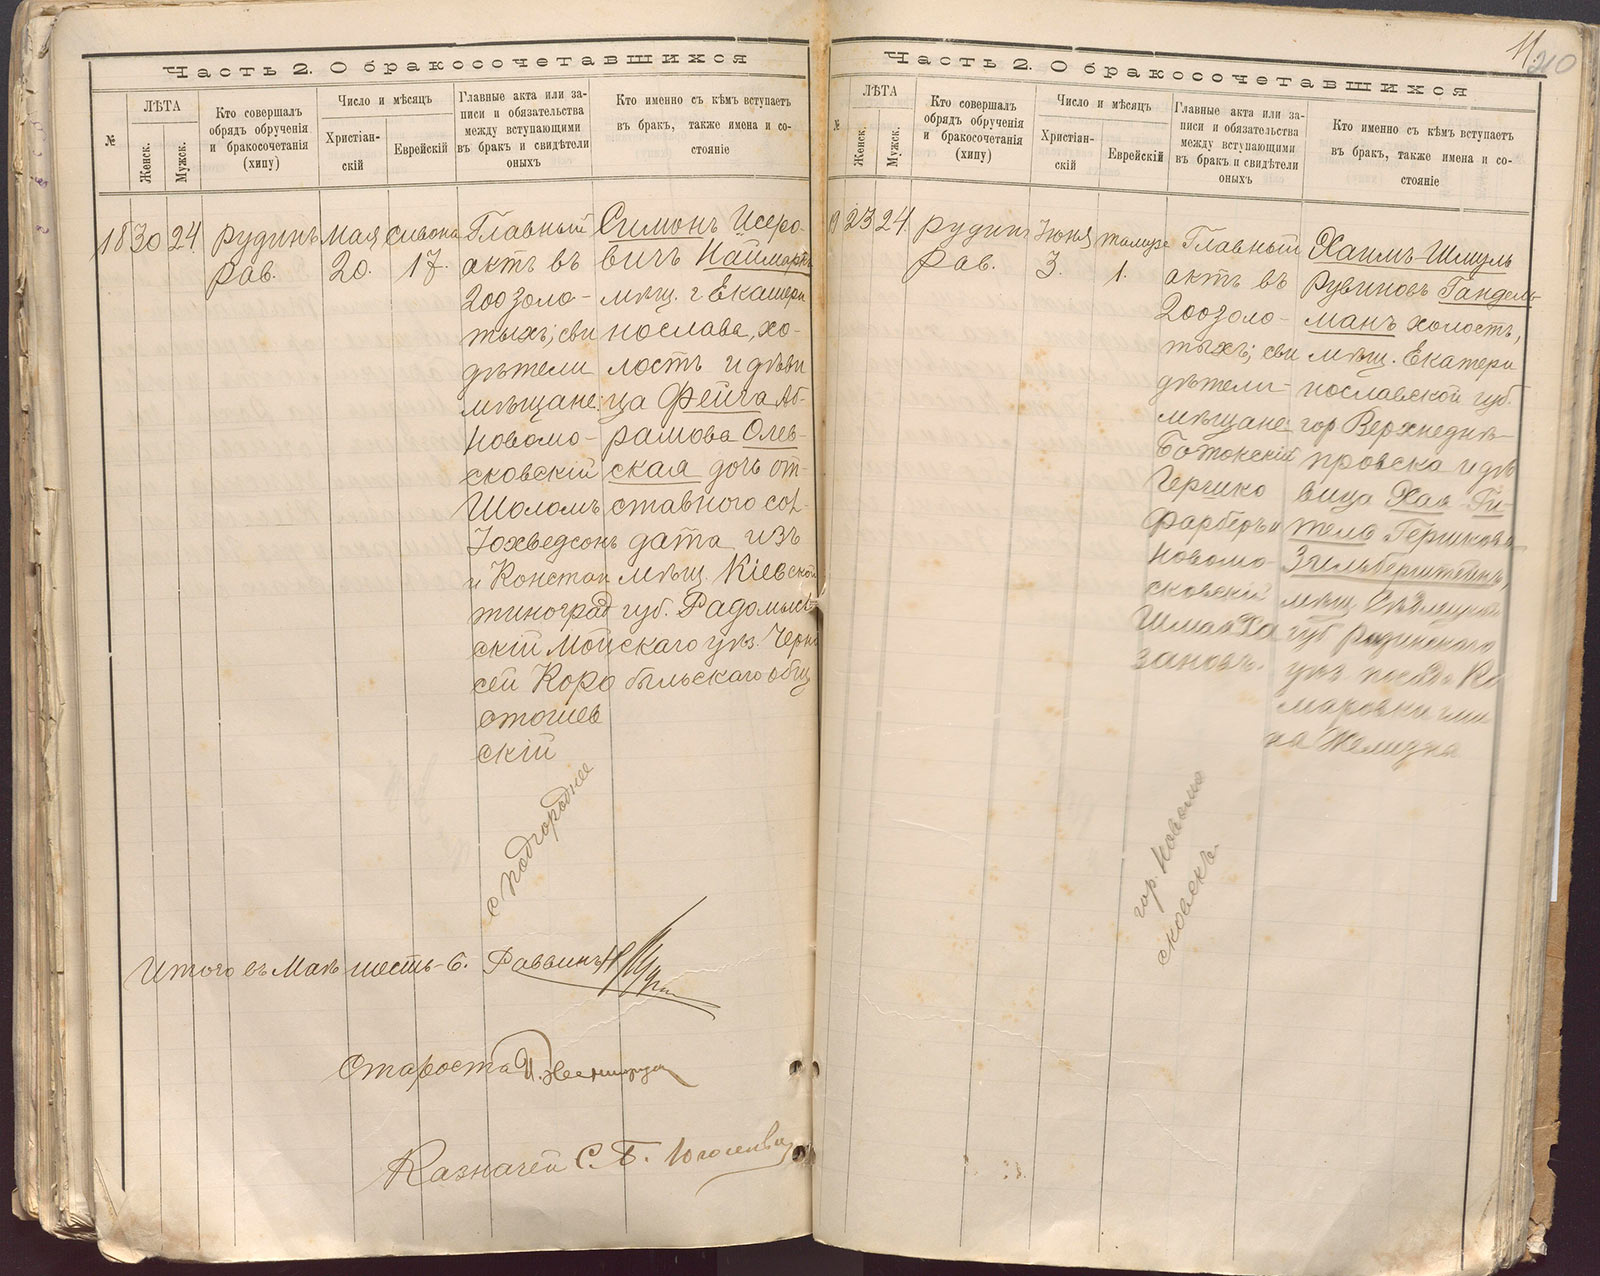 Часть 2. О бракосочетавшихся
№
ЛѢТА
Женск.
Мужск.
Кто совершалъ
обрядъ обрученія
и бракосочетанія
(хипу)
Число и мѣсяцъ
Христіан-
скій
Еврейскій
Главные акта или за-
писи и обязательства
между вступающими
въ бракъ и свидѣтели
оныхъ
Кто именно съ кѣмъ вступаетъ
въ бракъ, также имена и со-
стояніе
18
30
24
Рудинъ
рав.
Мая
20.
Сивона
17.
Главный
актъ въ
200 золо-
тыхъ; сви
дѣтели
мѣщане:
Новомо-
сковскій
Шоломъ
Іохведсонъ
и Констан
тиноград
скій Мой
сей Коро
стошев
скій
Симонъ Исеро-
вичъ Наймаркъ
мѣщ. г Екатери
нослава, хо-
лостъ и дѣви
ца Фейга Аб-
рамова Олев-
ская дочь от-
ставного сол-
дата изъ
мѣщ. Кіевской
губ. Радомысл-
скаго уѣз. Черно
быльскаго общ
с Подгороднее
Итого въ Маѣ шесть - 6. Раввинъ
Староста
Казначей С. Б.
11.
210
Часть 2. О бракосочетавшихся
№
ЛѢТА
Женск.
Мужск.
Кто совершалъ
обрядъ обрученія
и бракосочетанія
(хипу)
Число и мѣсяцъ
Христіан-
скій
Еврейскій
Главные акта или за-
писи и обязательства
между вступающими
въ бракъ и свидѣтели
оныхъ
Кто именно съ кѣмъ вступаетъ
въ бракъ, также имена и со-
стояніе
19
23
24
Рудинъ
рав.
Іюня
3.
Тамузе
1.
Главный
актъ въ
200 золо-
тыхъ; сви
дѣтели-
мѣщане:
Гершко
Фарберъ и
Новомо-
сковскій
Шмая Ха
зановъ.
Хаимъ-Шмуль
Рувиновъ Гандель-
манъ холостъ,
мѣщ. Екатери
нославской губ.
гор Верхнеднѣ-
провска и дѣ
вица Хая-Ги-
теля Гершкова
Зильберштейнъ,
мѣщ. Сѣдлецкой
губ Радинскаго
уѣз. посада Ко
маровки гми
на Желизна
гор. Новомо
сковскъ.